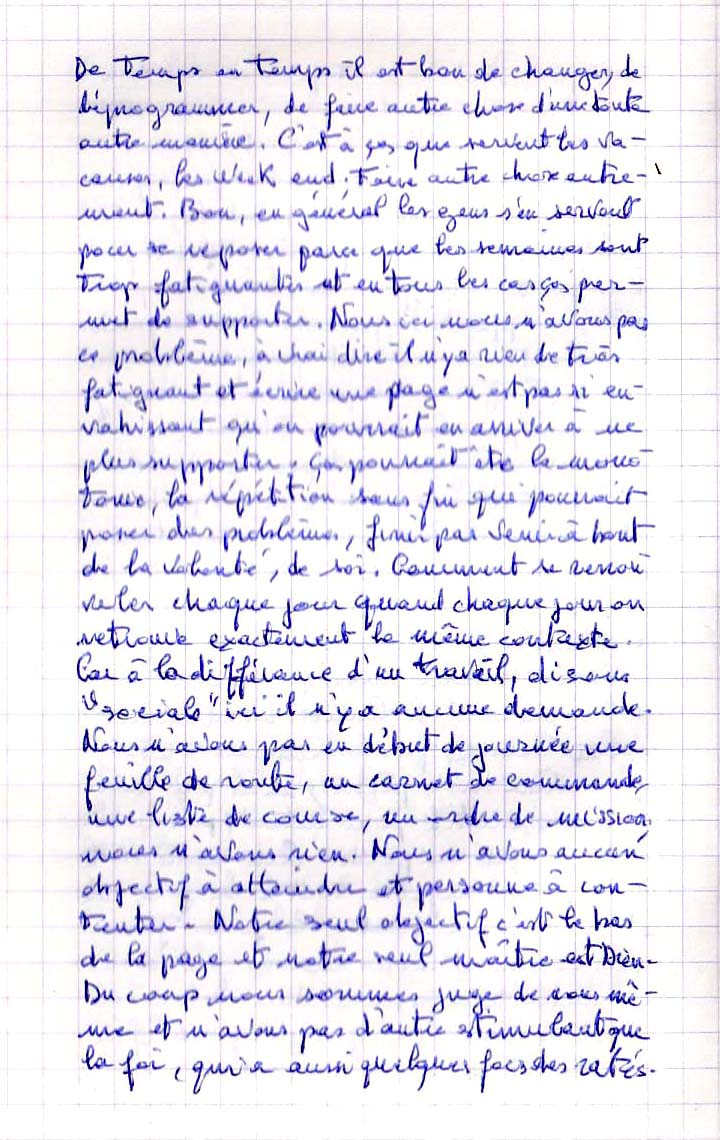 De temps en temps il est bon de changer, de
déprogrammer, de faire autre chose d'une toute
autre manière. C'est à ça que servent les va-
cances, les Week end; faire autre chose autre-
ment. Bon, en général les gens s'en servent
pour se reposer parce que les semaines sont
trop fatiguantes et en tous les cas ça per-
met de supporter. Nous ici nous n'avons pas
ce problème, à vrai dire il n'y a rien de très
fatigant et écrire une page n'est pas si en-
vahissant qu'on pourrait en arriver à ne
plus supporter. Ça pourrait être la mono
tonie, la répétition sans fin qui pourrait
poser des problèmes, finir par venir à bout
de la volonté, de soi. Comment se renou
veler chaque jour quand chaque jour on
retrouve exactement le même contexte.
Car à la différence d'un travail, disons
"sociale" ici il n'y a aucune demande.
Nous n'avons pas en début de journée une
feuille de route, un carnet de commande,
une liste de course, un ordre de mission,
nous n'avons rien. Nous n'avons aucun
objectif à atteindre et personne à con-
tenter. Notre seul objectif c'est le bas
de la page et notre seul maître est Dieu.
Du coup nous sommes juge de nous mê-
me et n'avons pas d'autre stimulant que
la foi, qui a aussi quelques fois des ratés.